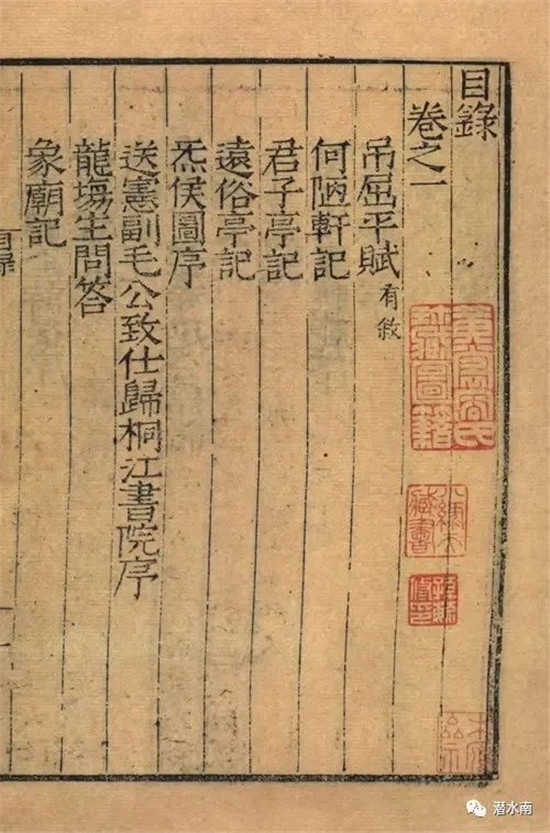 目錄
卷之一
吊屈平賦有敘
何陋軒記
君子亭記
遠俗亭記
炁侯圖序
送憲副毛公致仕歸桐江書院序
龍塲生問答
象廟記
目録
潜水南